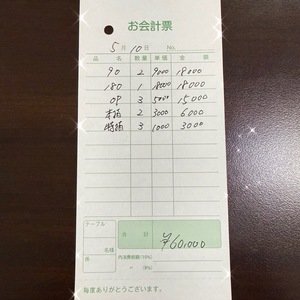 お会計票
5月10日 No.
品名 数量 単価 金額
90 2 9000 18000
180 1 18000 18000
OP 3 5000 15000
本指 2 3000 6000
3 1000 3000
テーブル
名
様
合計 ¥60,000
内消費税額(10%)
〃 (8%)
毎度ありがとうございます。